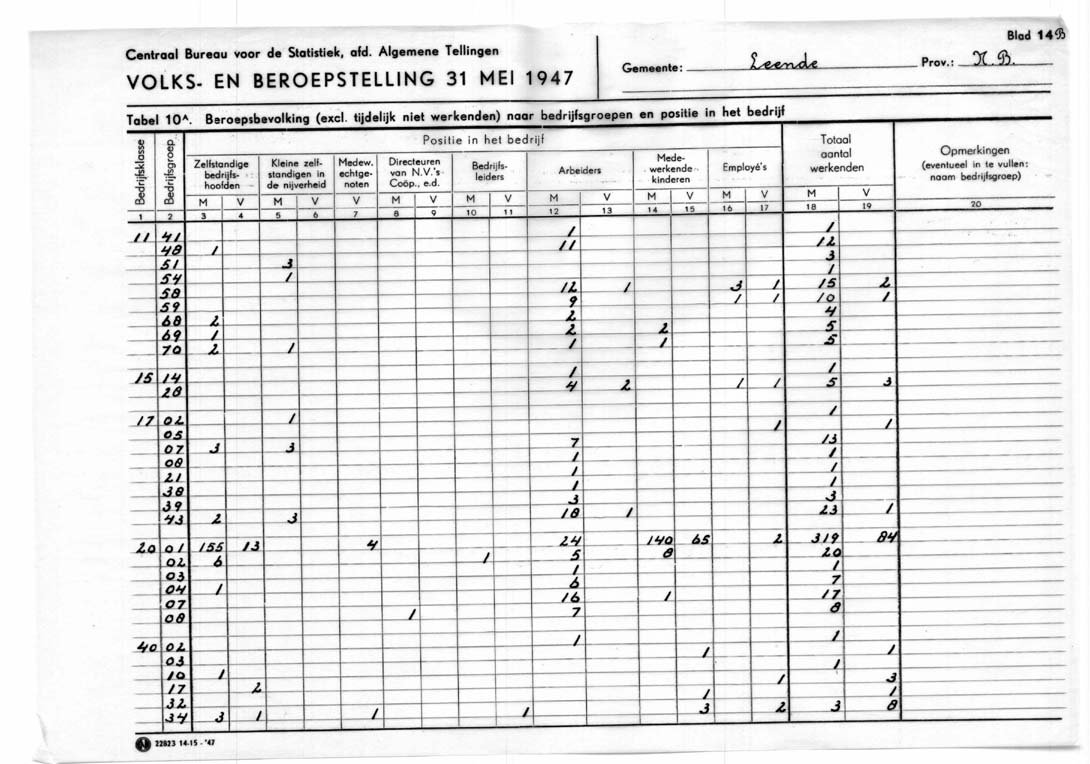 Blad 14B
Centraal Bureau voor de Statistiek, afd. Algemene Tellingen
VOLKS- EN BEROEPSTELLING 31 MEI 1947
Gemeente: Leende Prov.: N.B.
Tabel 10^A. Beroepsbevolking (excl. tijdelijk niet werkenden) naar bedrijfsgroepen en positie in het bedrijf
Bedrijfsklasse
Bedrijfsgroep
Positie in het bedrijf
Zelfstandige bedrijfs-hoofden
Kleine zelf-standigen in de nijverheid
Medew. echtge-noten
Directeuren van N.V.'s Coöp., e.d.
Bedrijfs-leiders
Arbeiders
Mede-werkende kinderen
Employé's
Totaal aantal werkenden
Opmerkingen (eventueel in te vullen: naam bedrijfsgroep)
M V M V V M V M V M V M V M V M V
1 2 3 4 5 6 7 8 9 10 11 12 13 14 15 16 17 18 19 20
11 41 1 1
48 1 11 12
51 3 3
54 1 1
58 12 1 3 1 15 2
59 9 1 1 10 1
68 2 2 4
69 1 2 2 5
70 2 1 1 1 5
15 14 1 1
28 4 2 1 1 5 3
17 02 1 1
05 1 1
07 3 3 7 13
08 1 1
21 1 1
38 1 1
39 3 3
43 2 3 18 1 23 1
20 01 155 13 4 24 140 65 2 319 84
02 6 1 5 8 20
03 1 1
04 1 6 7
07 16 1 17
08 1 7 8
40 02 1 1
03 1 1
10 1 1
17 2 1 3
32 1 1
34 3 1 1 1 3 2 3 8
N 22823 14-15 - '47